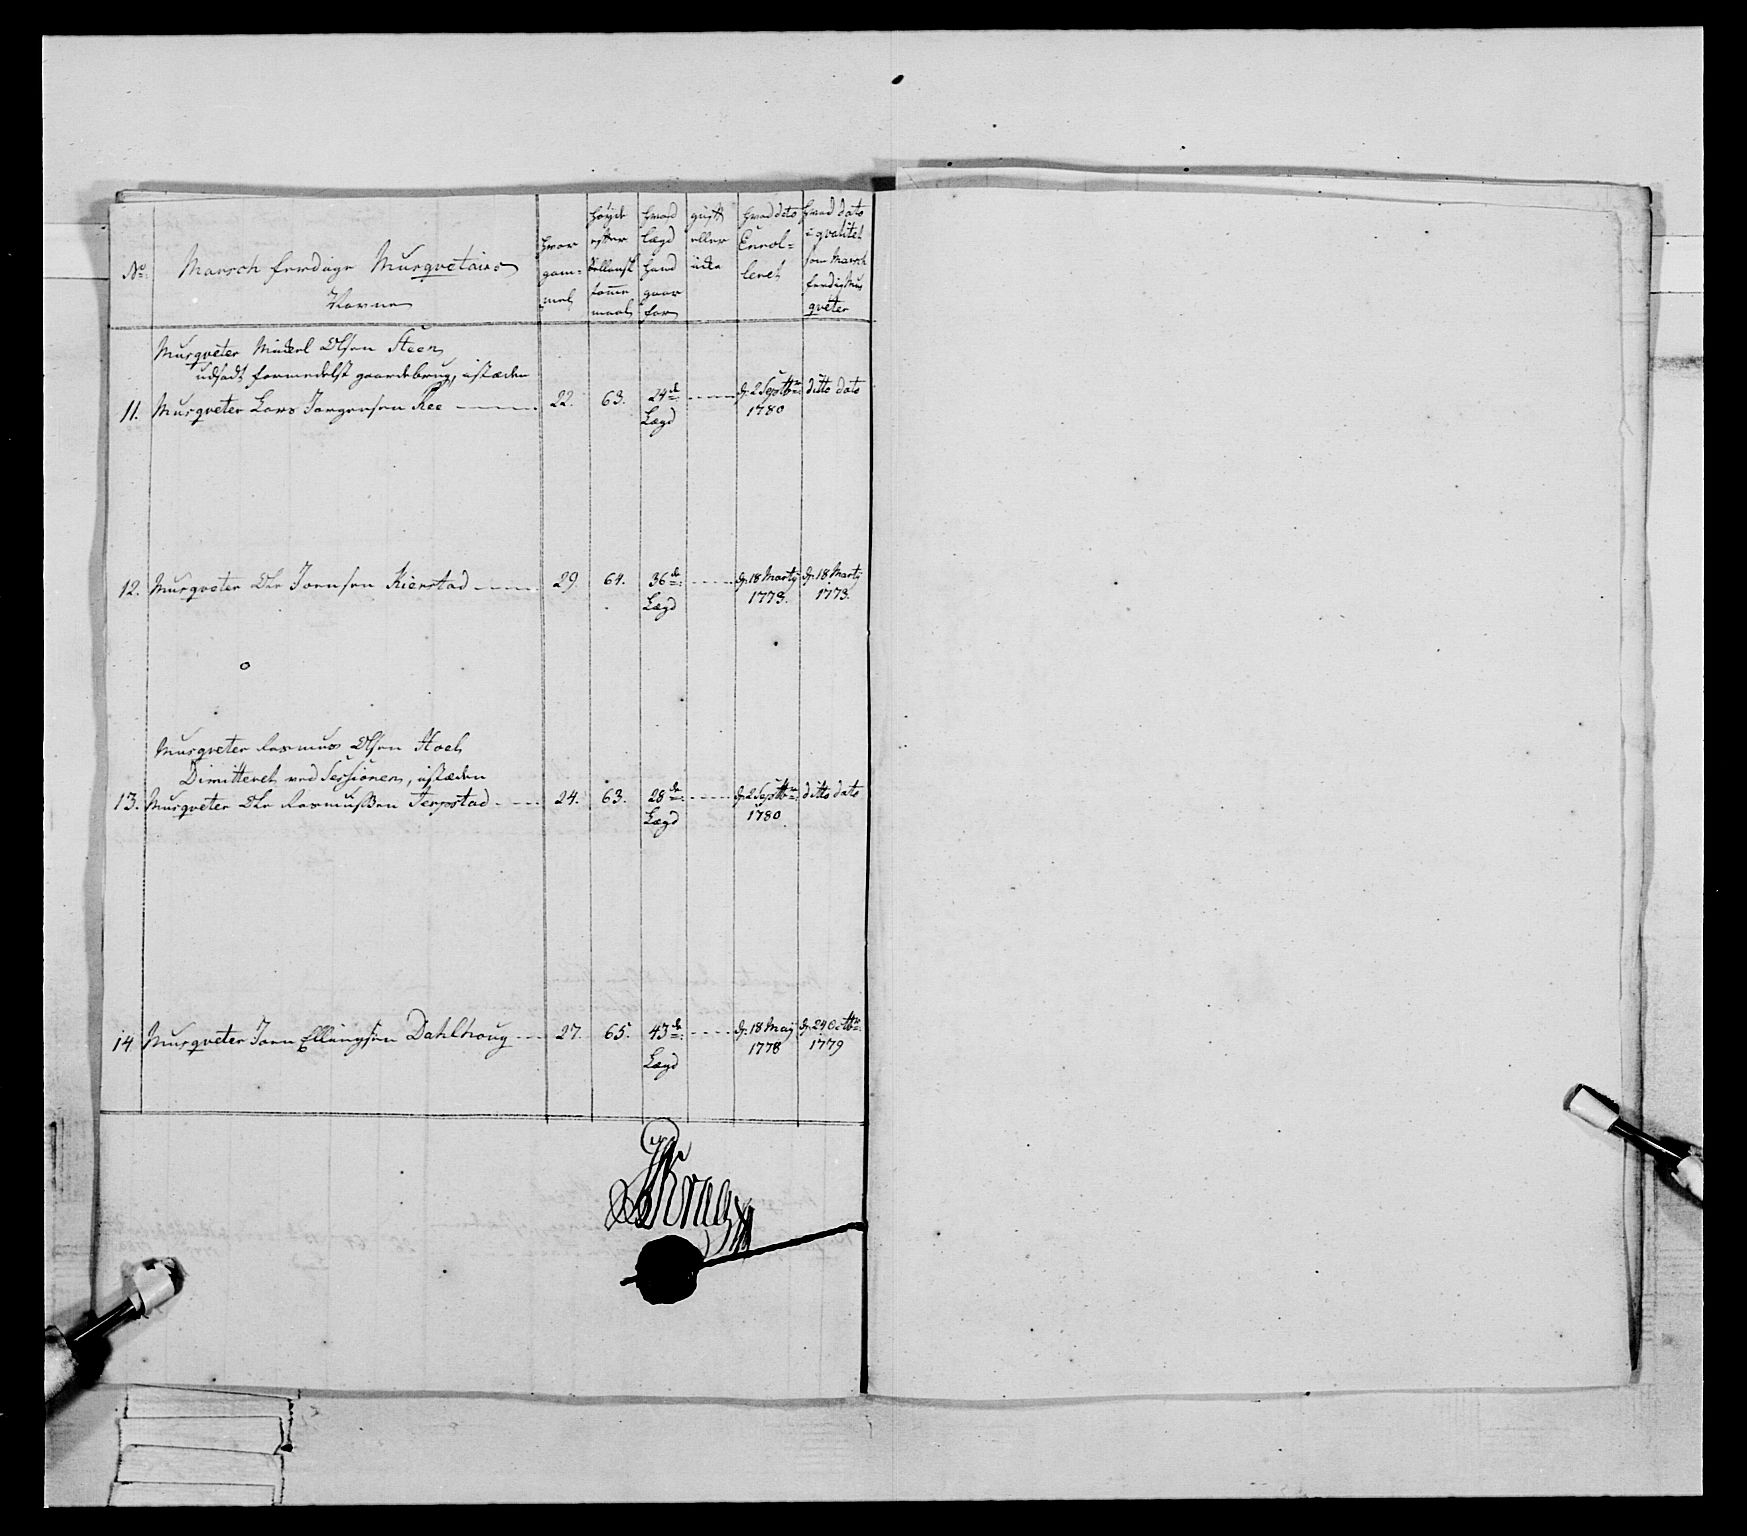 No:
Marsch færdige Musqvetairs
Navne
hvor
gam=
mel
høyde
efter
Sællansk
tomme
maal
hvad
lægd
hand
gaar
for
gift
eller
ikke
hvad dato
Enrol=
leret
hvad dato
i qvalitet
som Marsch
færdig Mus
qveter
Musqveter Mickel Olsen Steen
udsadt formedelst gaardebrug, istæden
11. Musqveter Lars Jørgensen Ree 22. 63. 24de Lægd d. 2 Septbr: 1780 ditto dato
12. Musqveter Ole Joensen Kierstad 29. 64. 36de Lægd d. 18 Martij 1773. d. 18 Martij 1773.
Musqveter Rasmus Olsen Hoel
Dimitteret ved Sessionen, istæden
13. Musqveter Ole Rasmussen Jerpstad 24. 63. 28de Lægd d. 2 Septbr: 1780. ditto dato
14 Musqveter Joen Ellingsen Dahlhoug 27. 65. 43de Lægd d. 18 Maij 1778 d. 24 Octbr: 1779
Krag